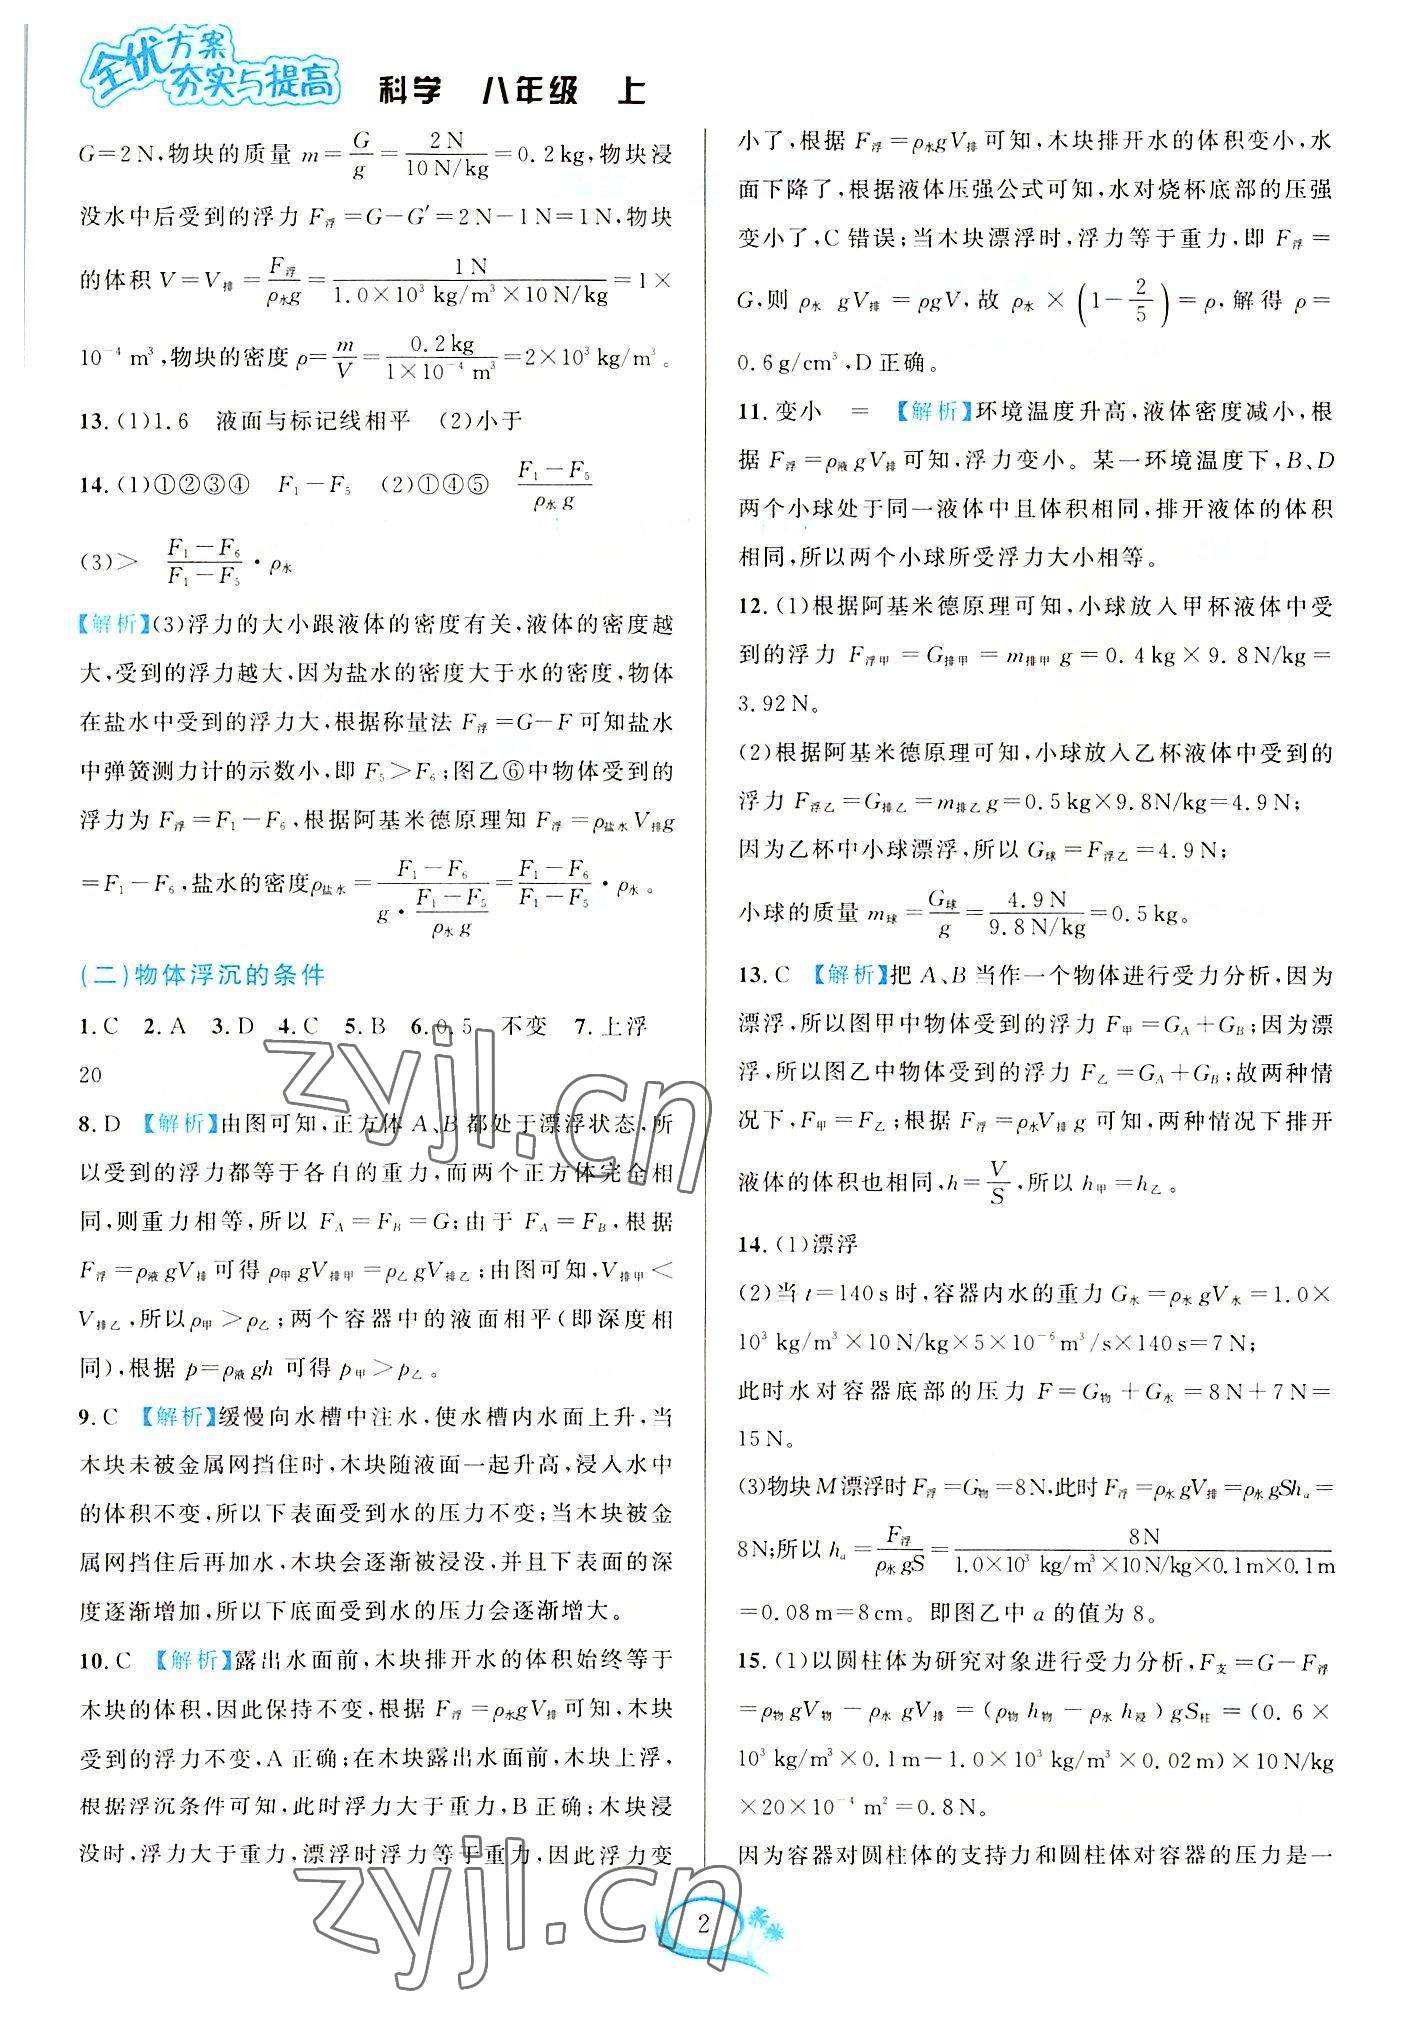 全优方案
夯实与提高
科学 八年级 上
G=2N,物块的质量 m=G/g=2N/10N/kg=0.2kg,物块浸
没水中后受到的浮力 F浮=G-G′=2N-1N=1N,物块
的体积 V=V排=F浮/ρ水g=1N/1.0×10³ kg/m³×10N/kg=1×
10⁻⁴ m³,物块的密度 ρ=m/V=0.2kg/1×10⁻⁴ m³=2×10³ kg/m³。
13.(1)1.6 液面与标记线相平 (2)小于
14.(1)①②③④ F₁-F₅ (2)①④⑤ F₁-F₅/ρ水 g
(3)> F₁-F₆/F₁-F₅·ρ水
【解析】(3)浮力的大小跟液体的密度有关,液体的密度越
大,受到的浮力越大,因为盐水的密度大于水的密度,物体
在盐水中受到的浮力大,根据称量法 F浮=G-F 可知盐水
中弹簧测力计的示数小,即 F₅>F₆;图乙⑥中物体受到的
浮力为 F浮=F₁-F₆,根据阿基米德原理知 F浮=ρ盐水V排g
=F₁-F₆,盐水的密度ρ盐水=F₁-F₆/g·F₁-F₅/ρ水 g=F₁-F₆/F₁-F₅·ρ水。
(二)物体浮沉的条件
1.C 2.A 3.D 4.C 5.B 6.0.5 不变 7.上浮
20
8.D 【解析】由图可知,正方体 A、B 都处于漂浮状态,所
以受到的浮力都等于各自的重力,而两个正方体完全相
同,则重力相等,所以 F_A=F_B=G;由于 F_A=F_B,根据
F浮=ρ液gV排可得 ρ甲gV排甲=ρ乙gV排乙;由图可知,V排甲<
V排乙,所以ρ甲>ρ乙;两个容器中的液面相平(即深度相
同),根据 p=ρ液gh 可得 p甲>p乙。
9.C 【解析】缓慢向水槽中注水,使水槽内水面上升,当
木块未被金属网挡住时,木块随液面一起升高,浸入水中
的体积不变,所以下表面受到水的压力不变;当木块被金
属网挡住后再加水,木块会逐渐被浸没,并且下表面的深
度逐渐增加,所以下底面受到水的压力会逐渐增大。
10.C 【解析】露出水面前,木块排开水的体积始终等于
木块的体积,因此保持不变,根据 F浮=ρ水gV排可知,木块
受到的浮力不变,A 正确;在木块露出水面前,木块上浮,
根据浮沉条件可知,此时浮力大于重力,B 正确;木块浸
没时,浮力大于重力,漂浮时浮力等于重力,因此浮力变
小了,根据 F浮=ρ水gV排可知,木块排开水的体积变小,水
面下降了,根据液体压强公式可知,水对烧杯底部的压强
变小了,C 错误;当木块漂浮时,浮力等于重力,即 F浮=
G,则 ρ水 gV排=ρgV,故 ρ水×(1-2/5)=ρ,解得 ρ=
0.6g/cm³,D 正确。
11.变小 = 【解析】环境温度升高,液体密度减小,根
据 F浮=ρ液gV排可知,浮力变小。某一环境温度下,B、D
两个小球处于同一液体中且体积相同,排开液体的体积
相同,所以两个小球所受浮力大小相等。
12.(1)根据阿基米德原理可知,小球放入甲杯液体中受
到的浮力 F浮甲=G排甲=m排甲g=0.4kg×9.8N/kg=
3.92N。
(2)根据阿基米德原理可知,小球放入乙杯液体中受到的
浮力 F浮乙=G排乙=m排乙g=0.5kg×9.8N/kg=4.9N;
因为乙杯中小球漂浮,所以 G球=F浮乙=4.9N;
小球的质量 m球=G球/g=4.9N/9.8N/kg=0.5kg。
13.C 【解析】把 A、B 当作一个物体进行受力分析,因为
漂浮,所以图甲中物体受到的浮力 F甲=G_A+G_B;因为漂
浮,所以图乙中物体受到的浮力 F乙=G_A+G_B;故两种情
况下,F甲=F乙;根据 F浮=ρ水V排g 可知,两种情况下排开
液体的体积也相同,h=V/S,所以 h甲=h乙。
14.(1)漂浮
(2)当 t=140s时,容器内水的重力 G水=ρ水gV水=1.0×
10³ kg/m³×10N/kg×5×10⁻⁶m³/s×140s=7N;
此时水对容器底部的压力 F=G物+G水=8N+7N=
15N。
(3)物块M漂浮时 F浮=G物=8N,此时 F浮=ρ水gV排=ρ水gShₐ=
8N;所以 hₐ=F浮/ρ水gS=8N/1.0×10³ kg/m³×10N/kg×0.1m×0.1m
=0.08m=8cm。即图乙中 a 的值为 8。
15.(1)以圆柱体为研究对象进行受力分析,F支=G-F浮
=ρ物gV物-ρ水gV排=(ρ物h物-ρ水h浸)gS柱=(0.6×
10³ kg/m³×0.1m-1.0×10³ kg/m³×0.02m)×10N/kg
×20×10⁻⁴ m²=0.8N。
因为容器对圆柱体的支持力和圆柱体对容器的压力是一
zyjl.cn
zyjl.cn
2